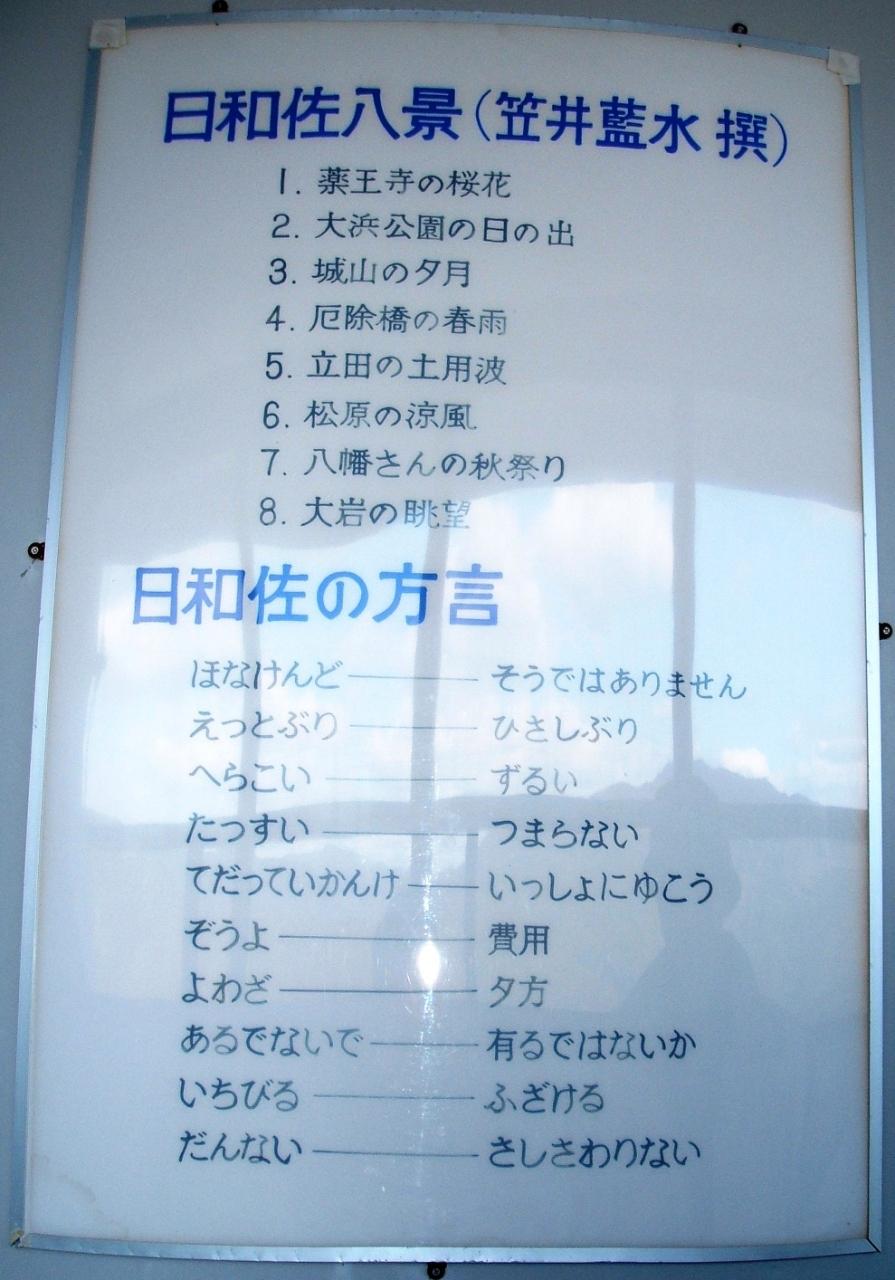 日和佐八景(笠井藍水 撰)
1. 薬王寺の桜花
2. 大浜公園の日の出
3. 城山の夕月
4. 厄除橋の春雨
5. 立田の土用波
6. 松原の涼風
7. 八幡さんの秋祭り
8. 大岩の眺望
日和佐の方言
ほなけんど――そうではありません
えっとぶり――ひさしぶり
へらこい――ずるい
たっすい――つまらない
てだっていかんけ――いっしょにゆこう
ぞうよ――費用
よわざ――夕方
あるでないで――有るではないか
いちびる――ふざける
だんない――さしさわりない